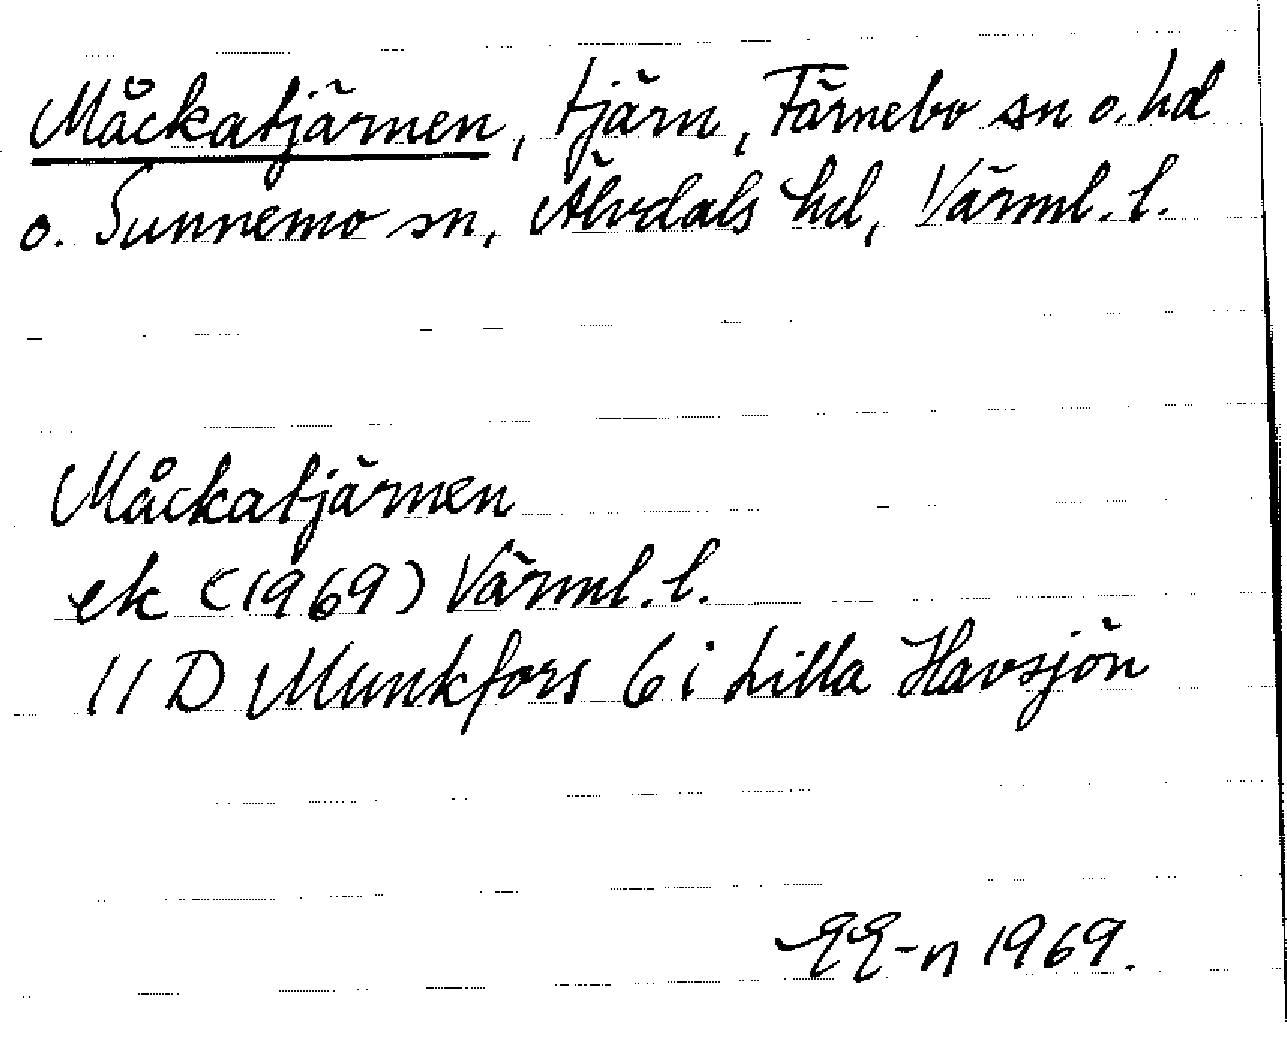 Måckatjärnen, tjärn, Färnebo sn o. hd
o. Sunnemo sn, Älvdals hd, Värml. l.
Måckatjärnen
ek (1969) Värml. l.
11 D Munkfors 6 i Lilla Havsjön
EE-n 1969.